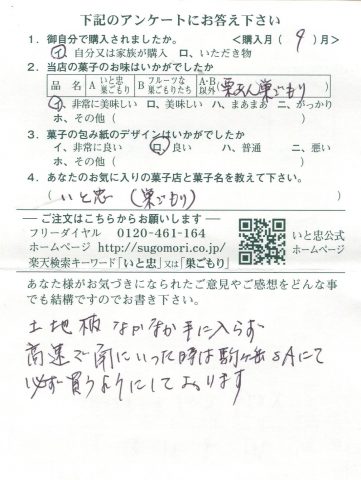 下記のアンケートにお答え下さい
1. 御自分で購入されましたか。 <購入月( 9 )月>
イ. 自分又は家族が購入 ロ. いただき物
2. 当店の菓子のお味はいかがでしたか
品 名 A いと忠巣ごもり B フルーツな巣ごもりたち A・B以外( 栗きん巣ごもり )
イ. 非常に美味しい ロ. 美味しい ハ. まあまあ ニ. がっかり
ホ. その他( )
3. 菓子の包み紙のデザインはいかがでしたか
イ. 非常に良い ロ. 良い ハ. 普通 ニ. 悪い
ホ. その他( )
4. あなたのお気に入りの菓子店と菓子名を教えて下さい。
( いと忠 (巣ごもり) )
― ご注文はこちらからお願いします ―
フリーダイヤル 0120-461-164
ホームページ http://sugomori.co.jp/
楽天検索キーワード「いと忠」又は「巣ごもり」
いと忠公式
ホームページ
あなた様がお気づきになられたご意見やご感想をどんな事
でも結構ですのでお書き下さい。
土地柄 なかなか手に入らず
高速で南にいった時は駒ヶ岳SAにて
必ず買うようにしております